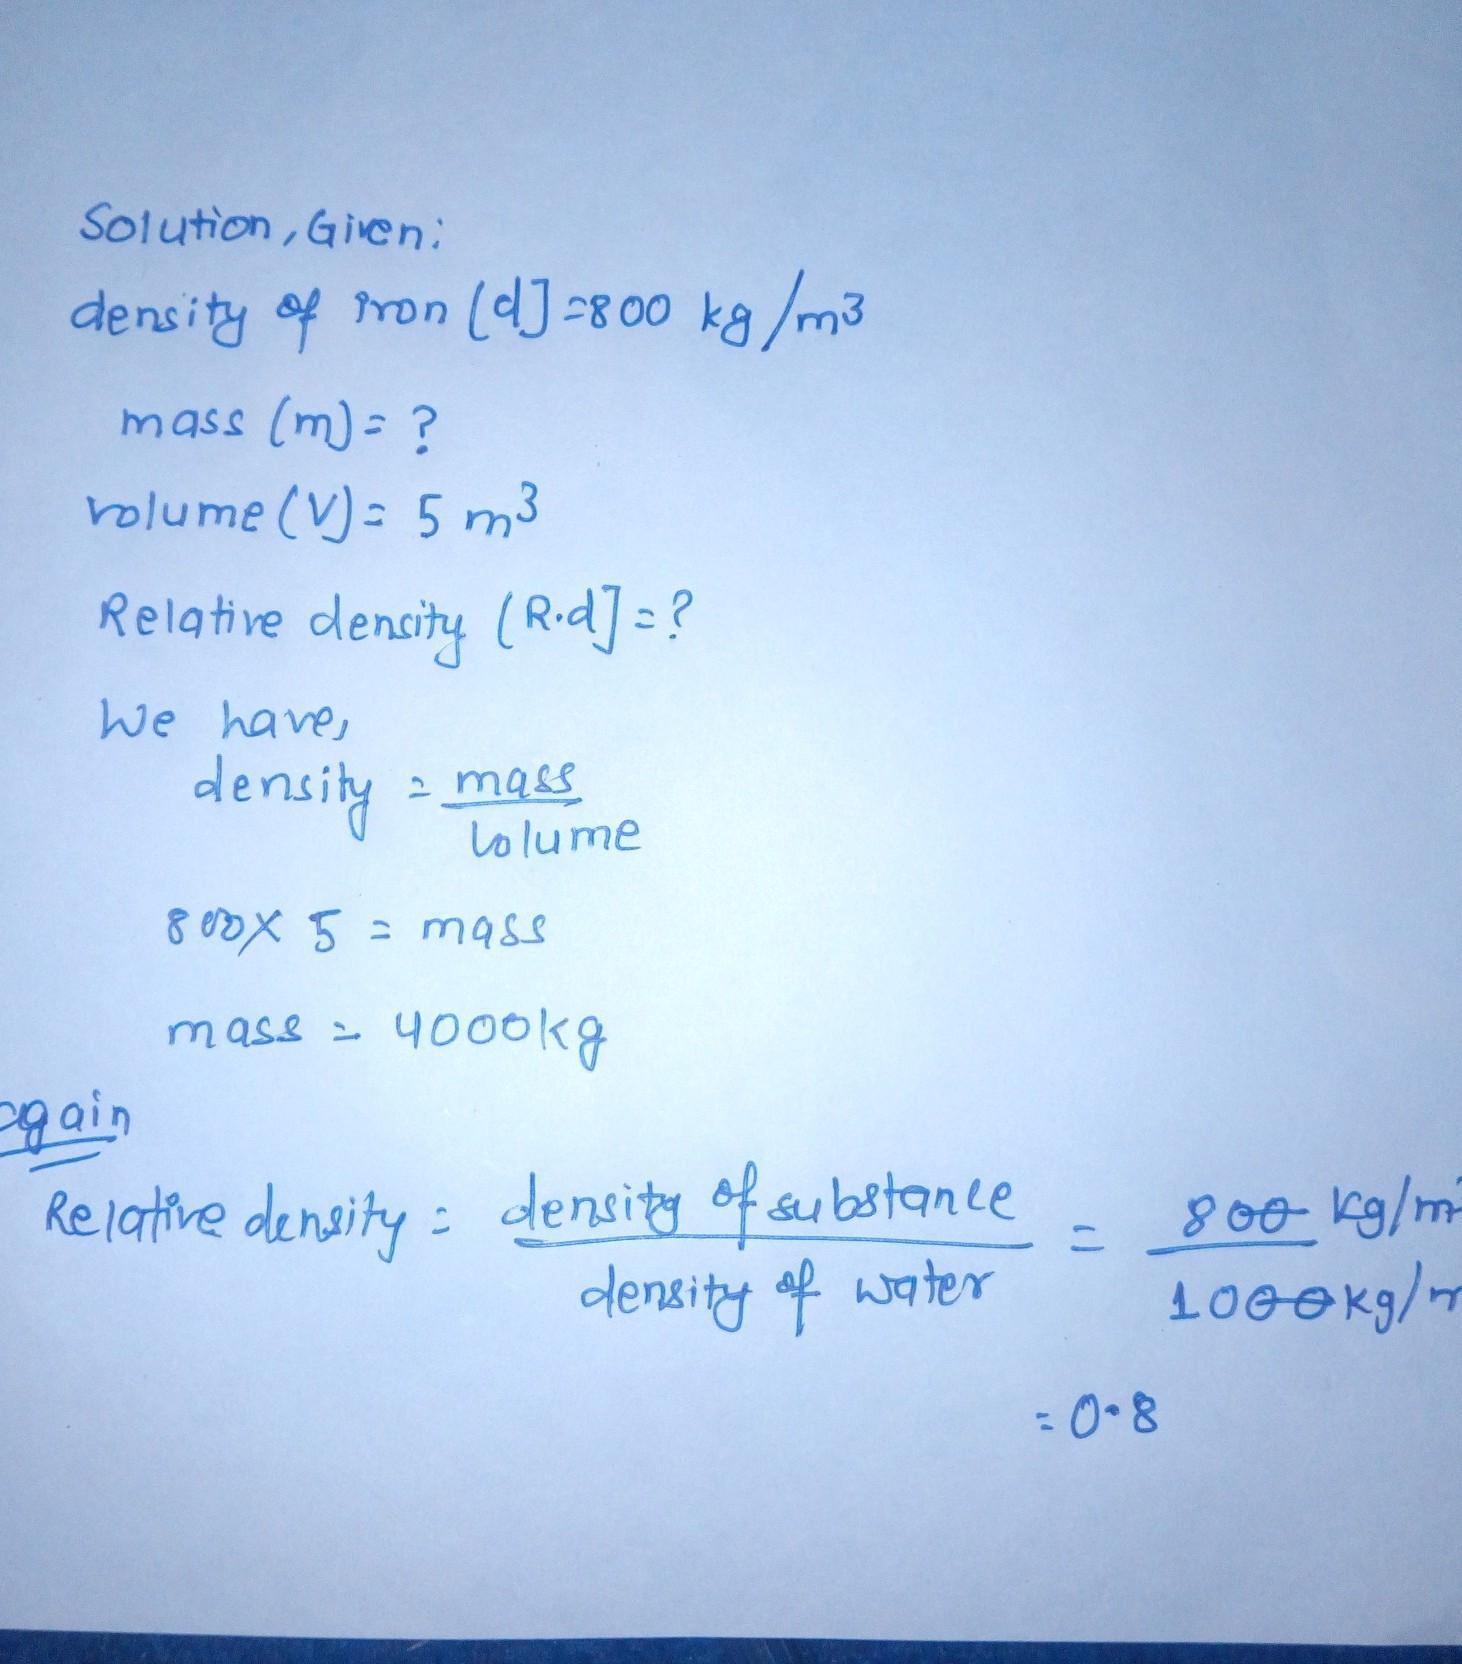 Solution, Given:
density of iron (d] =800 kg/m3
mass (m) = ?
volume (V) = 5 m3
Relative density (R.d] = ?
We have,
density = mass
volume
800 X 5 = mass
mass = 4000kg
again
Relative density = density of substance = 800 kg/m
density of water 1000kg/m
= 0.8